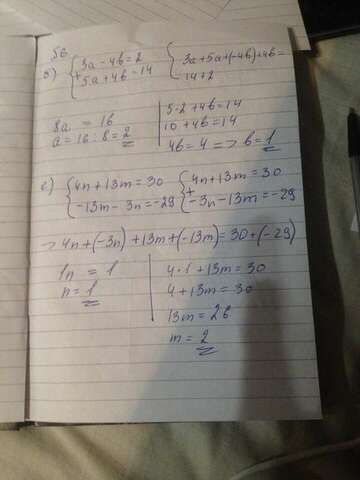 56
б) { 3a - 4b = 2
+ 5a + 4b = 14
{ 3a + 5a + (-4b) + 4b =
14 + 2
8a = 16
a = 16 : 8 = 2
5·2 + 4b = 14
10 + 4b = 14
4b = 4 => b = 1
е) { 4n + 13m = 30
-13m - 3n = -29
{ 4n + 13m = 30
+ -3n - 13m = -29
-> 4n + (-3n) + 13m + (-13m) = 30 + (-29)
1n = 1
n = 1
4·1 + 13m = 30
4 + 13m = 30
13m = 26
m = 2